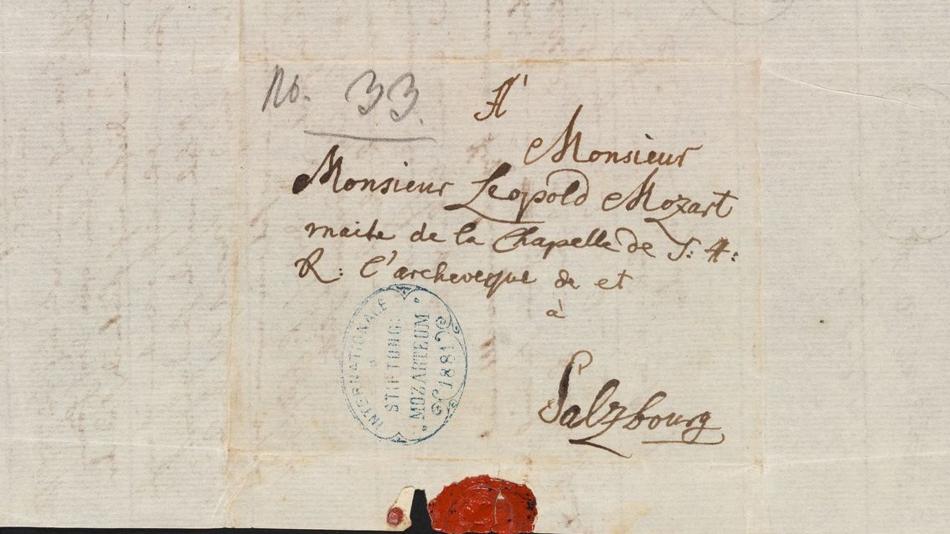 No. 33.
A'
Monsieur
Monsieur Leopold Mozart
maitre de la Chapelle de S: A:
R: l'archeveque de et
à
Salzbourg
INTERNATIONALE
STIFTUNG:
MOZARTEUM
1881